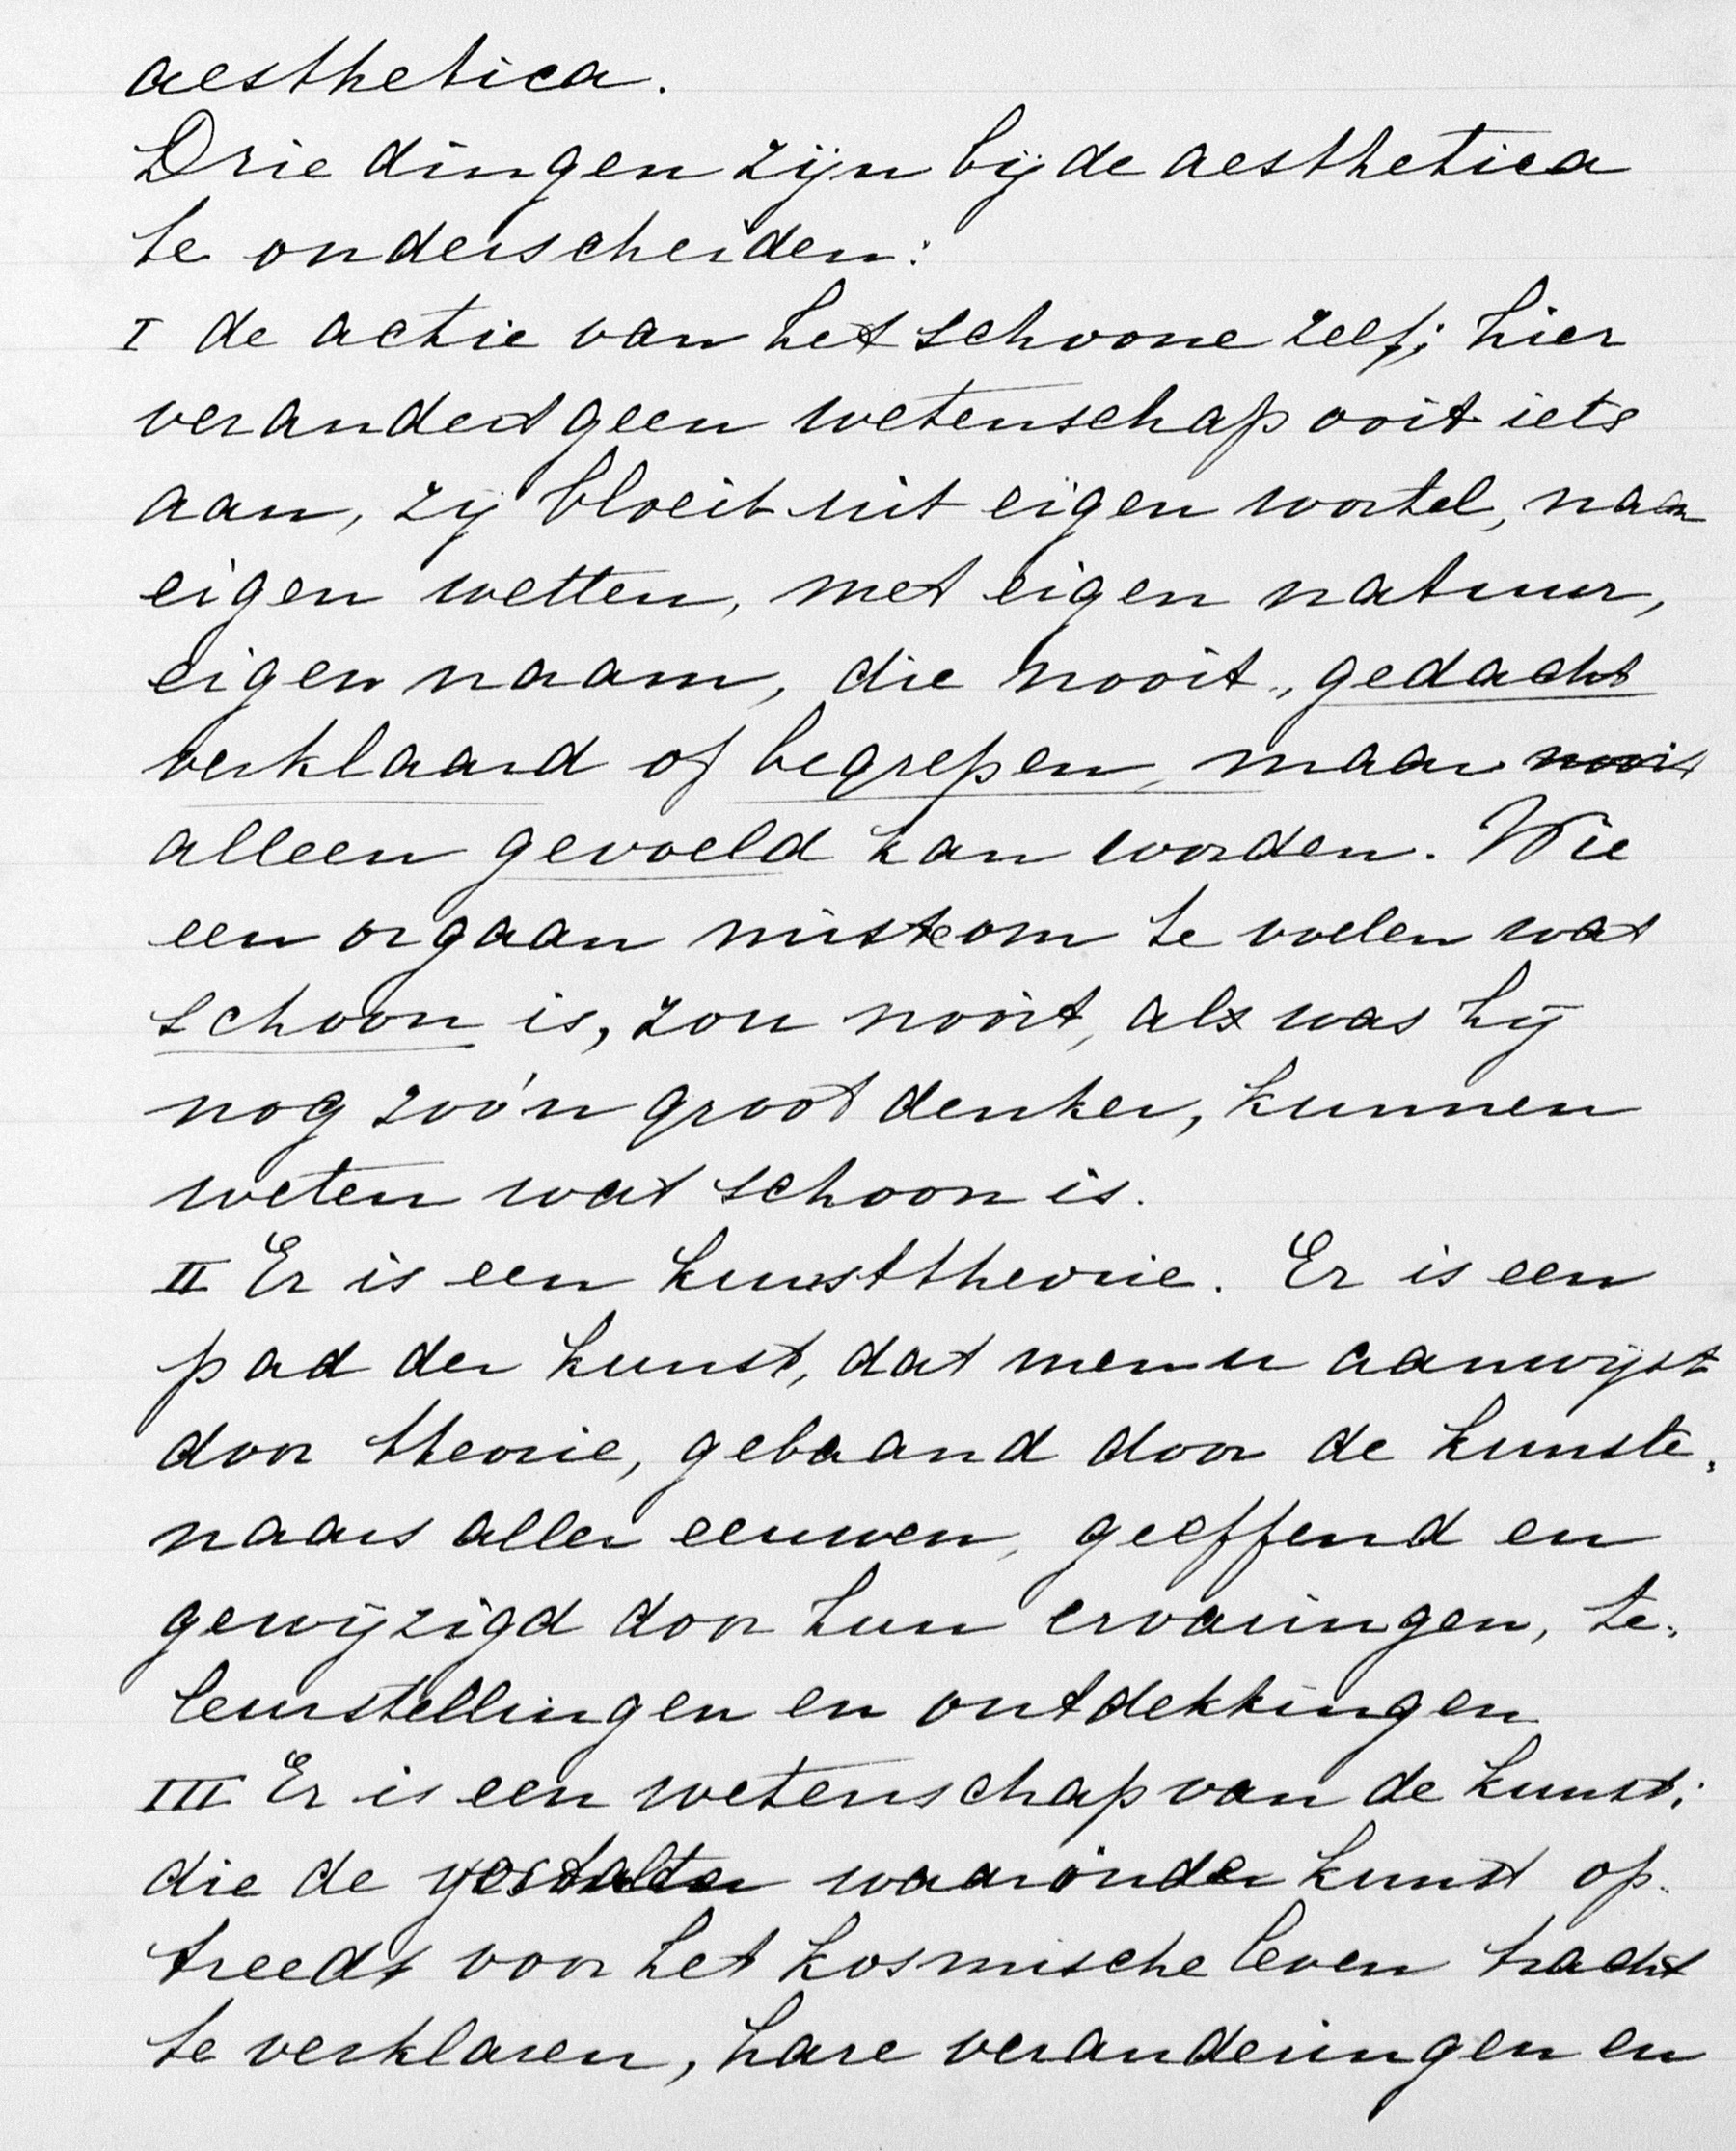 aesthetica.
Drie dingen zijn bij de aesthetica
te onderscheiden:
I de actie van het schoone zelf; hier
verandert geen wetenschap ooit iets
aan, zij bloeit uit eigen wortel, naar
eigen wetten, met eigen natuur,
eigen naam, die nooit, gedacht
verklaard of begrepen, maar nooit
alleen gevoeld kan worden. Wie
een orgaan miste om te voelen wat
schoon is, zou nooit, als was hij
nog zoo'n groot denker, kunnen
weten wat schoon is.
II Er is een kunsttheorie. Er is een
pad der kunst, dat men u aanwijst
door theorie, gebaand door de kunste-
naars aller eeuwen, geeffend en
gewijzigd door hun ervaringen, te-
leurstellingen en ontdekkingen
III Er is een wetenschap van de kunst;
die de gestalten waaronder kunst op-
treedt voor het kosmische leven tracht
te verklaren, hare veranderingen en